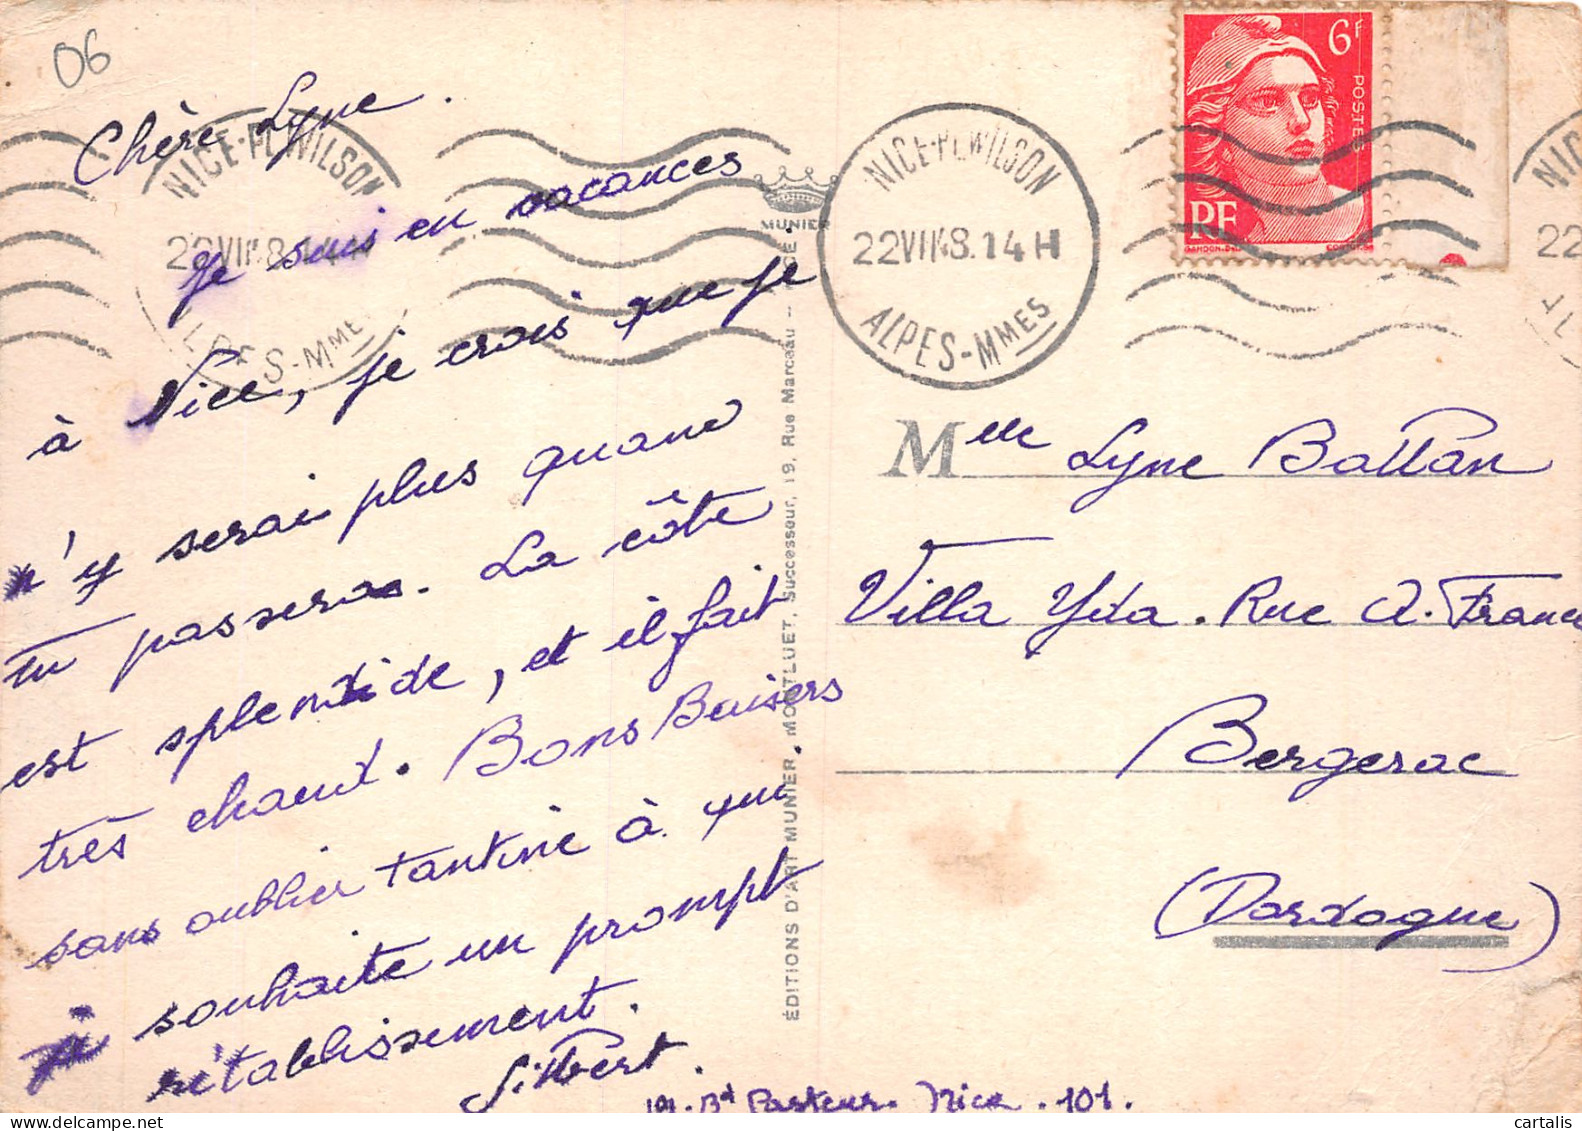 06
Chère Lyne.
je suis en vacances
à Nice, je crois que je
n'y serai plus quand
tu passeras. La côte
est splendide, et il fait
très chaud. Bons Baisers
sans oublier tantine à qui
je souhaite un prompt
rétablissement.
Gilbert.
191. Bd Pasteur. Nice. 101.
MUNIER
NICE
ÉDITIONS D'ART MUNIER, MONTLUET, Successeur, 19, Rue Marceau -- NICE
NICE-PL WILSON
22 VII 48.14 H
ALPES-MMES
NICE-PL WILSON
22 VII 48.14 H
ALPES-MMES
NI
22
6F
POSTES
RF
GANDON.DEL
Melle Lyne Ballan
Villa Yda. Rue A. France
Bergerac
(Dordogne)
cartalis